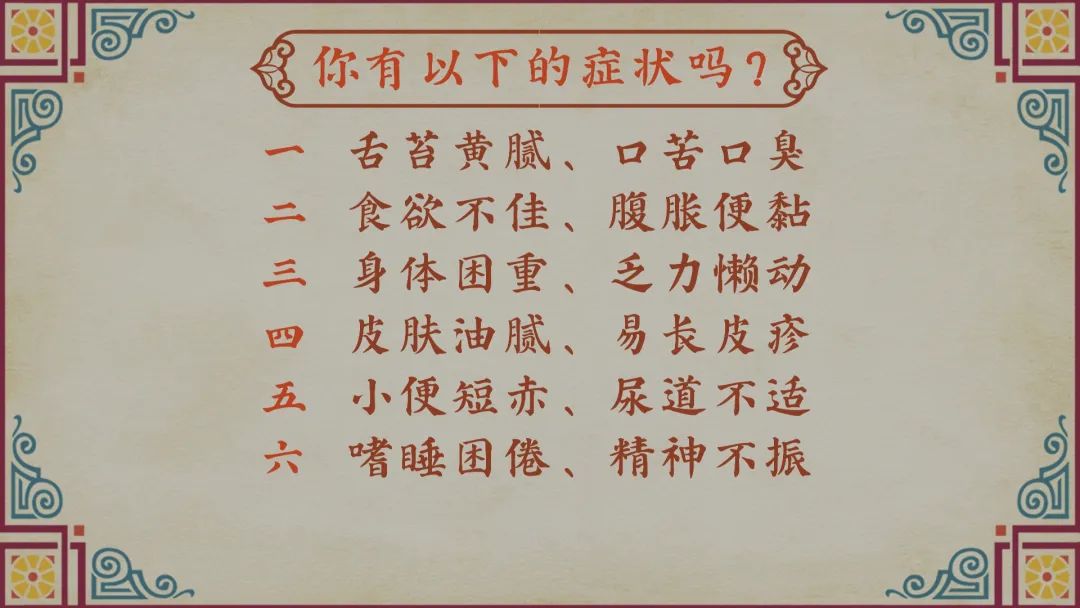 你有以下的症状吗？
一 舌苔黄腻、口苦口臭
二 食欲不佳、腹胀便黏
三 身体困重、乏力懒动
四 皮肤油腻、易长皮疹
五 小便短赤、尿道不适
六 嗜睡困倦、精神不振